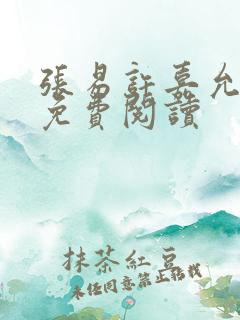 張易許嘉允
免費閱讀
抹茶紅豆
未經同意禁止轉載